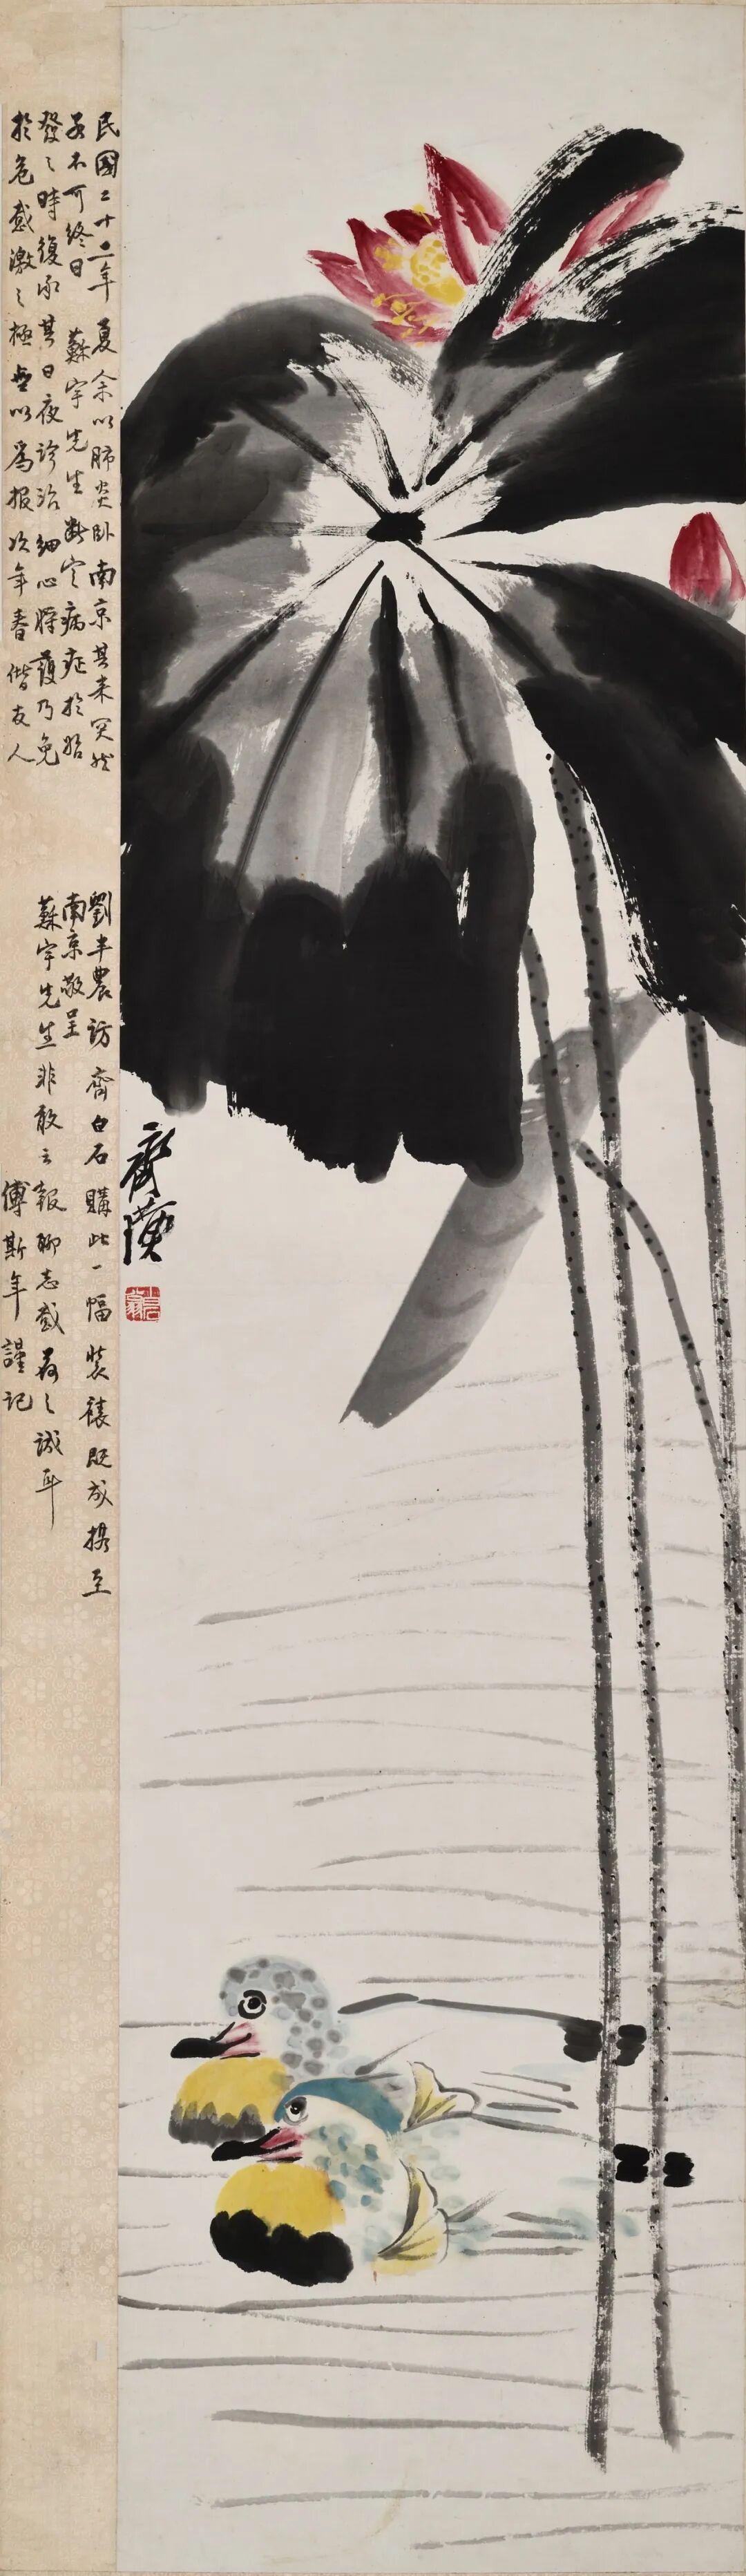 齊璜
民國二十二年夏余以肺炎卧南京其來突然
若不可終日 蘇宇先生斷定病症於始
發之時復承其日夜診治細心將護乃免
於危感激之極無以爲報次年春偕友人
劉半農訪齊白石購此一幅裝裱既成携至
南京敬呈
蘇宇先生非敢云報聊志感荷之誠耳
傅斯年謹記